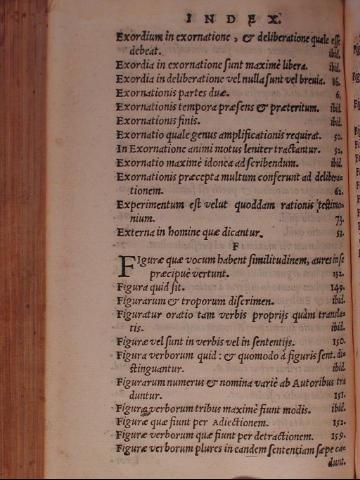 INDEX.
Exordium in exornatione, & deliberatione quale esse
debeat. ibid.
Exordia in exornatione sunt maximè libera. ibid.
Exordia in deliberatione vel nulla sunt vel brevia. 86.
Exornationis partes duæ. 6.
Exornationis tempora præsens & præteritum. ibid.
Exornationis finis. ibid.
Exornatio quale genus amplificationis requirat. 52.
In Exornatione animi motus leniter tractantur. 52.
Exornatio maximè idonea ad scribendum. ibid.
Exornationis præcepta multum conferunt ad delibera-
tionem. 62.
Experimentum est velut quoddam rationis testimo-
nium. 73.
Externa in homine quæ dicantur. 53.
F
Figuræ quæ vocum habent similitudinem, aures in se
præcipuè vertunt. 152.
Figura quid sit. 149.
Figurarum & troporum discrimen. ibid.
Figuratur oratio tam verbis proprijs quàm transla-
tis. ibid.
Figuræ vel sunt in verbis vel in sententijs. 150.
Figura verborum quid: & quomodo à figuris sent. di-
stinguantur. ibid.
Figurarum numerus & nomina variè ab Autoribus tra
duntur. 151.
Figuræ verborum tribus maximè fiunt modis. ibid.
Figuræ quæ fiunt per Adiectionem. 152.
Figuræ verborum quæ fiunt per detractionem. 159.
Figuræ verborum plures in eandem sententiam sæpe ca-
dunt.